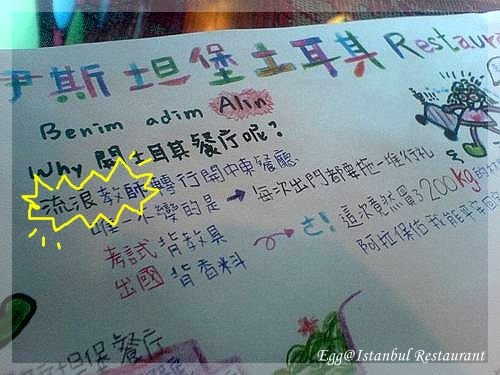 伊斯坦堡土耳其 Restaura
Benim adim Alin
Why 開土耳其餐厅呢?
流浪教師轉行開中東餐廳
唯一不變的是 → 每次出門都要拖一堆行礼
考試 背教具
出國 背香料
さ! 這次竟然買了200kg的
阿拉保佑我能平安
伊斯坦堡餐厅
Egg@Istanbul Restaurant